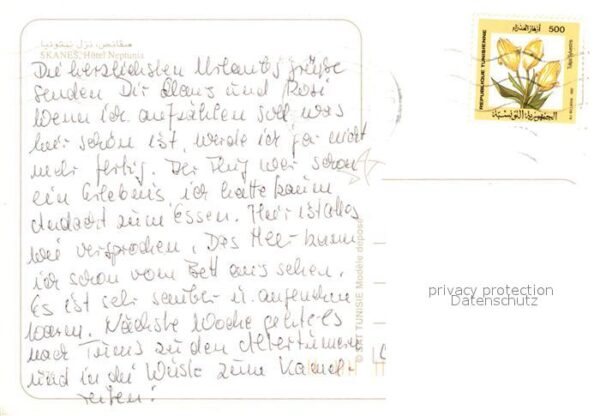 صقانص، نزل نبتونيا
SKANES, Hôtel Neptunia
Die herzlichsten Urlaubsgrüße
senden Dir Claus und Rosi
Wenn ich aufzählen soll was
hier schön ist, werde ich gar nicht
mehr fertig. Der Flug war schon
ein Erlebnis ich hatte kaum
Andacht zum Essen. Hier ist alles
wie versprochen. Das Meer kann
ich schon vom Bett aus sehen.
Es ist sehr sauber u. angenehm
warm. Nächste Woche geht es
nach Tunis zu den Altertümern
und in die Wüste zum Kamel-
reiten!
© SRT TUNISIE Modèle déposé
500
REPUBLIQUE TUNISIENNE
الجمهورية التونسية
privacy protection
Datenschutz